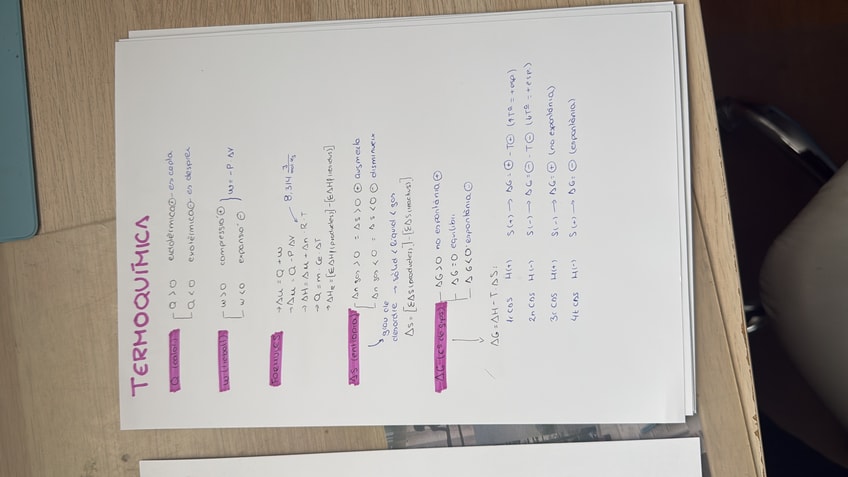 TERMOQUÍMICA
Q (calor) Q > 0 endotèrmica ⊕ → es escalfa
Q < 0 exotèrmica ⊖ → es desprèn
W (treball) W > 0 compressió ⊕
W < 0 expansió ⊖ } W = -P ΔV
FÓRMULES → ΔU = Q + W
→ ΔU = Q - P ΔV
→ ΔH = ΔU + Δn R·T 8.314
→ Q = m · Ce ΔT
→ ΔHR = [ΣΔHf (productes)] - [ΣΔHf (reactius)]
ΔS (entropia) Δn gas > 0 = ΔS > 0 ⊕ augmenta
Δn gas < 0 = ΔS < 0 ⊖ disminueix
grau de
desordre → sòlid < líquid < gas
ΔS = [ΣΔS (productes)] - [ΣΔS (reactius)]
ΔG > 0 no espontània ⊕
ΔG = 0 equilibri
ΔG < 0 espontània ⊖
ΔG = ΔH - T · ΔS:
1r cas H(+) S(+) → ΔG = ⊕ - T⊕ (↑Tª = + esp)
2n cas H(-) S(-) → ΔG = ⊖ - T⊖ (↓Tª = + esp)
3r cas H(+) S(-) → ΔG = ⊕ (no espontània)
4t cas H(-) S(+) → ΔG = ⊖ (espontània)